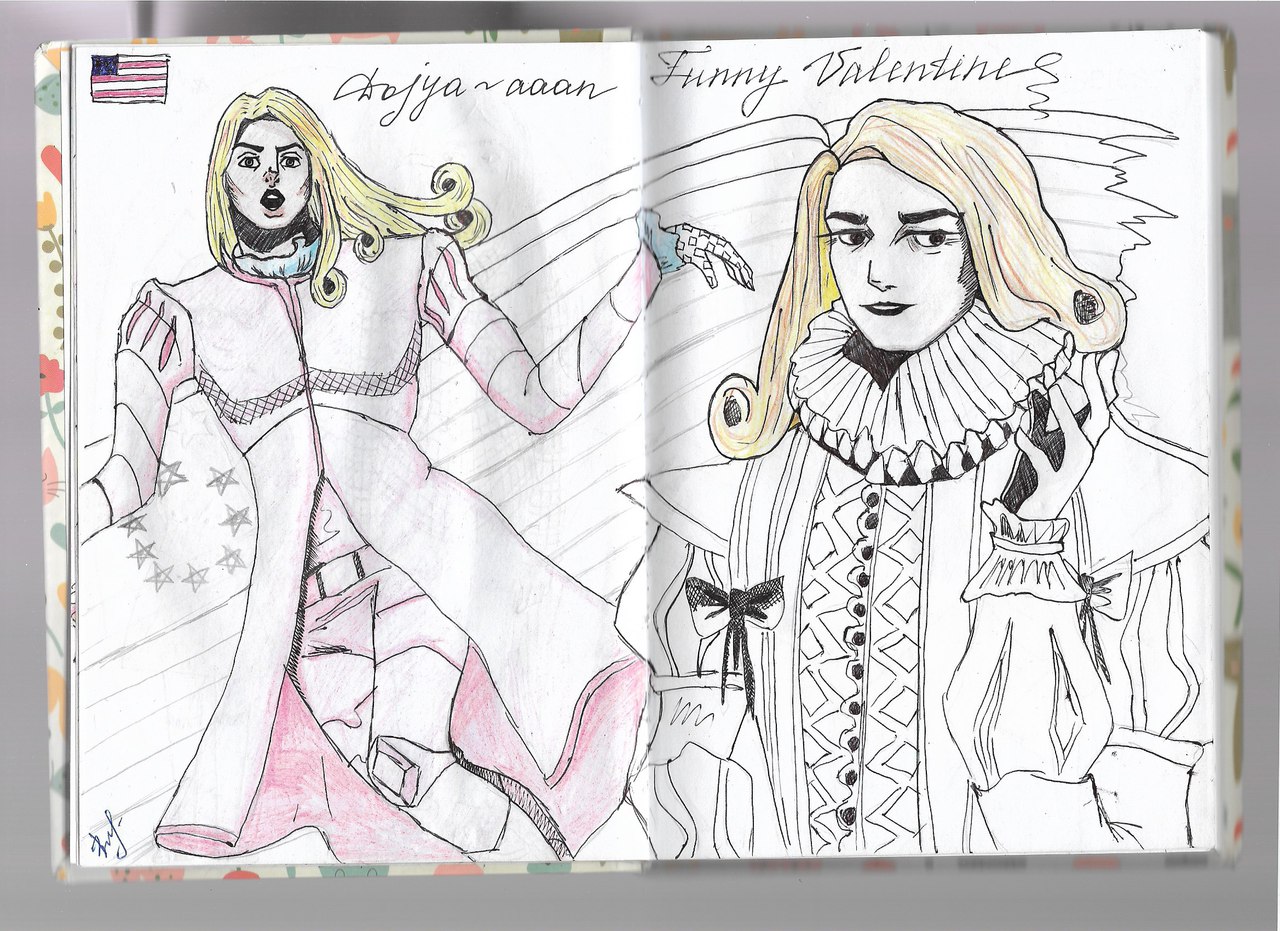 Dojya~aaan
Funny Valentine